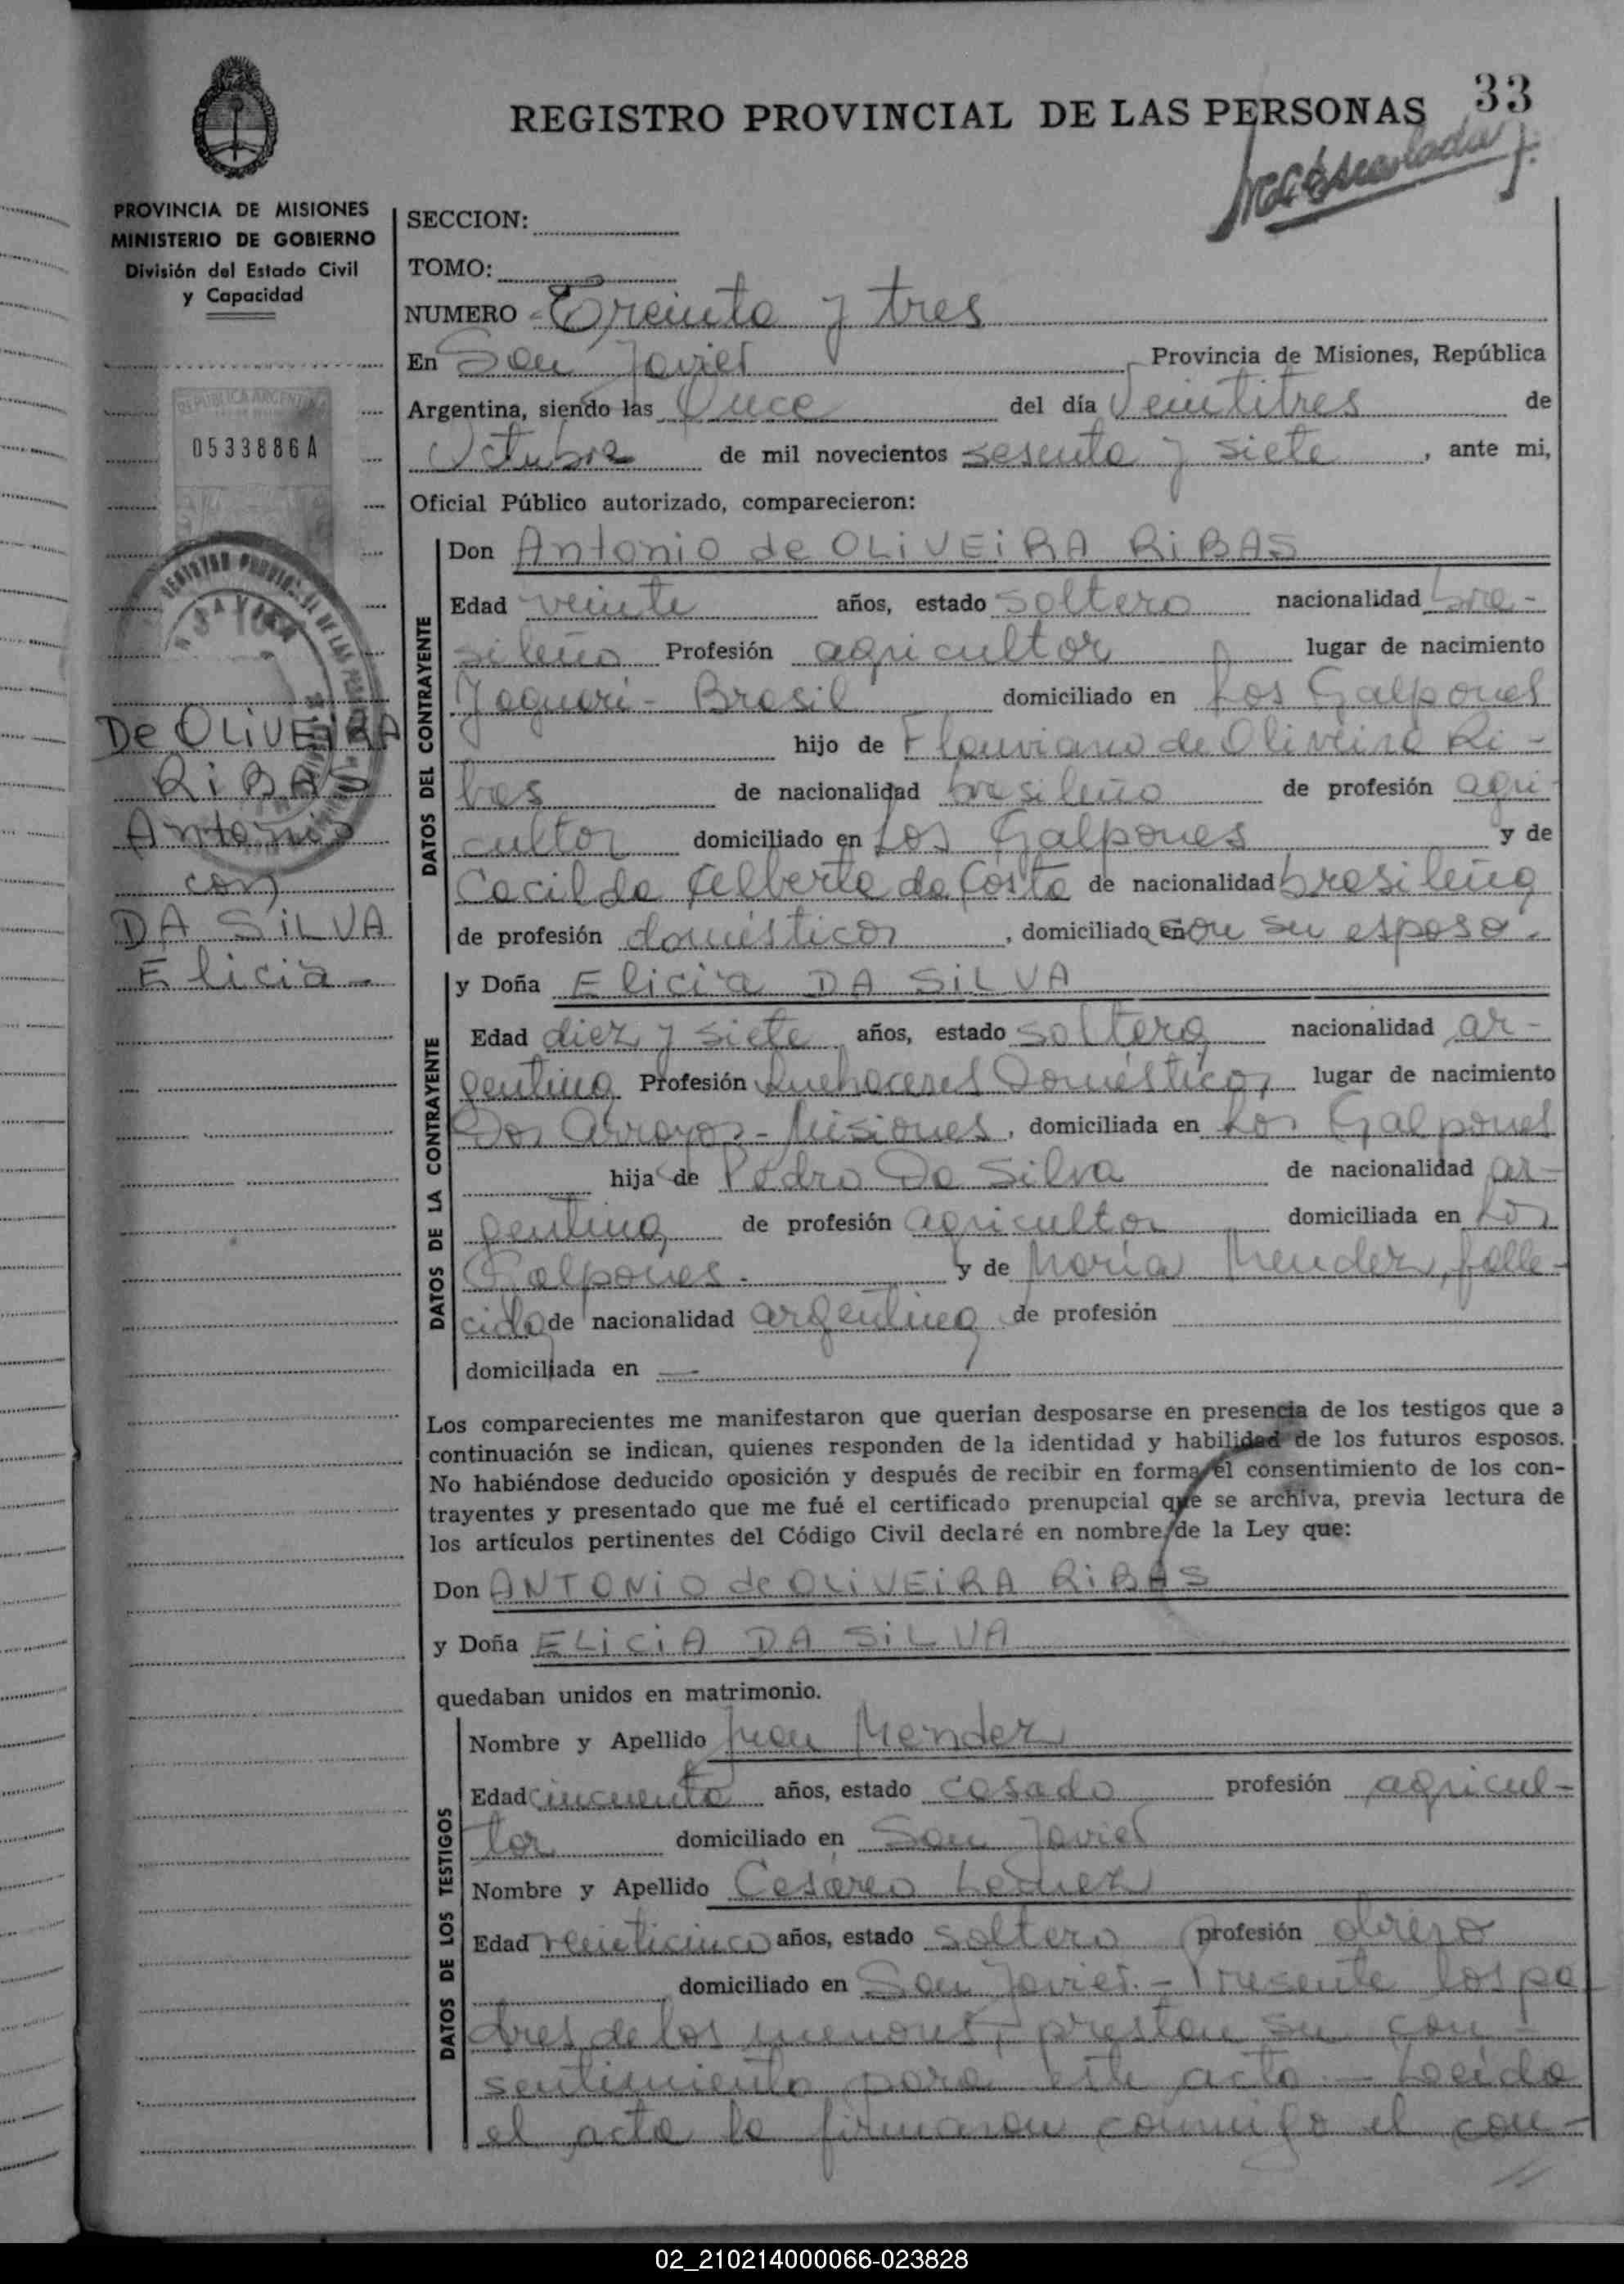 33
REGISTRO PROVINCIAL DE LAS PERSONAS
PROVINCIA DE MISIONES
MINISTERIO DE GOBIERNO
División del Estado Civil
y Capacidad
REPUBLICA ARGENTINA
0533886A
De OLIVEIRA
RIBAS
Antonio
con
DA SILVA
Elicia
SECCION:
TOMO:
NUMERO Treinta y tres
En San Javier Provincia de Misiones, República
Argentina, siendo las once del día Veintitres de
Octubre de mil novecientos sesenta y siete, ante mi,
Oficial Público autorizado, comparecieron:
DATOS DEL CONTRAYENTE
Don Antonio de OLIVEIRA RIBAS
Edad veinte años, estado soltero nacionalidad bra-
sileño Profesión agricultor lugar de nacimiento
Jaguari - Brasil domiciliado en Los Galpones
hijo de Flouviano de Oliveira Ri-
bas de nacionalidad brasileño de profesión agri
cultor domiciliado en Los Galpones y de
Cacilda Alberta da Costa de nacionalidad brasileña
de profesión domésticos, domiciliado en su esposo.
DATOS DE LA CONTRAYENTE
y Doña Elicia DA SILVA
Edad diez y siete años, estado soltera nacionalidad ar-
gentina Profesión Quehaceres Domésticos lugar de nacimiento
Dos Arroyos - Misiones, domiciliada en Los Galpones
hija de Pedro Da Silva de nacionalidad ar-
gentina de profesión agricultor domiciliada en Los
Galpones. y de María Mendez, falle-
cida de nacionalidad argentina de profesión
domiciliada en —
Los comparecientes me manifestaron que querian desposarse en presencia de los testigos que a
continuación se indican, quienes responden de la identidad y habilidad de los futuros esposos.
No habiéndose deducido oposición y después de recibir en forma el consentimiento de los con-
trayentes y presentado que me fué el certificado prenupcial que se archiva, previa lectura de
los artículos pertinentes del Código Civil declaré en nombre de la Ley que:
Don ANTONIO de OLIVEIRA RIBAS
y Doña ELICIA DA SILVA
quedaban unidos en matrimonio.
DATOS DE LOS TESTIGOS
Nombre y Apellido Juan Mendez
Edad cincuenta años, estado casado profesión agricul-
tor domiciliado en San Javier
Nombre y Apellido Cesáreo
Edad veinticinco años, estado soltero profesión obrero
domiciliado en San Javier. - Presente los pa
dres de los menores, prestan su con-
sentimiento para este acto. - Leída
el acta la firmaron conmigo el con-
02_210214000066-023828